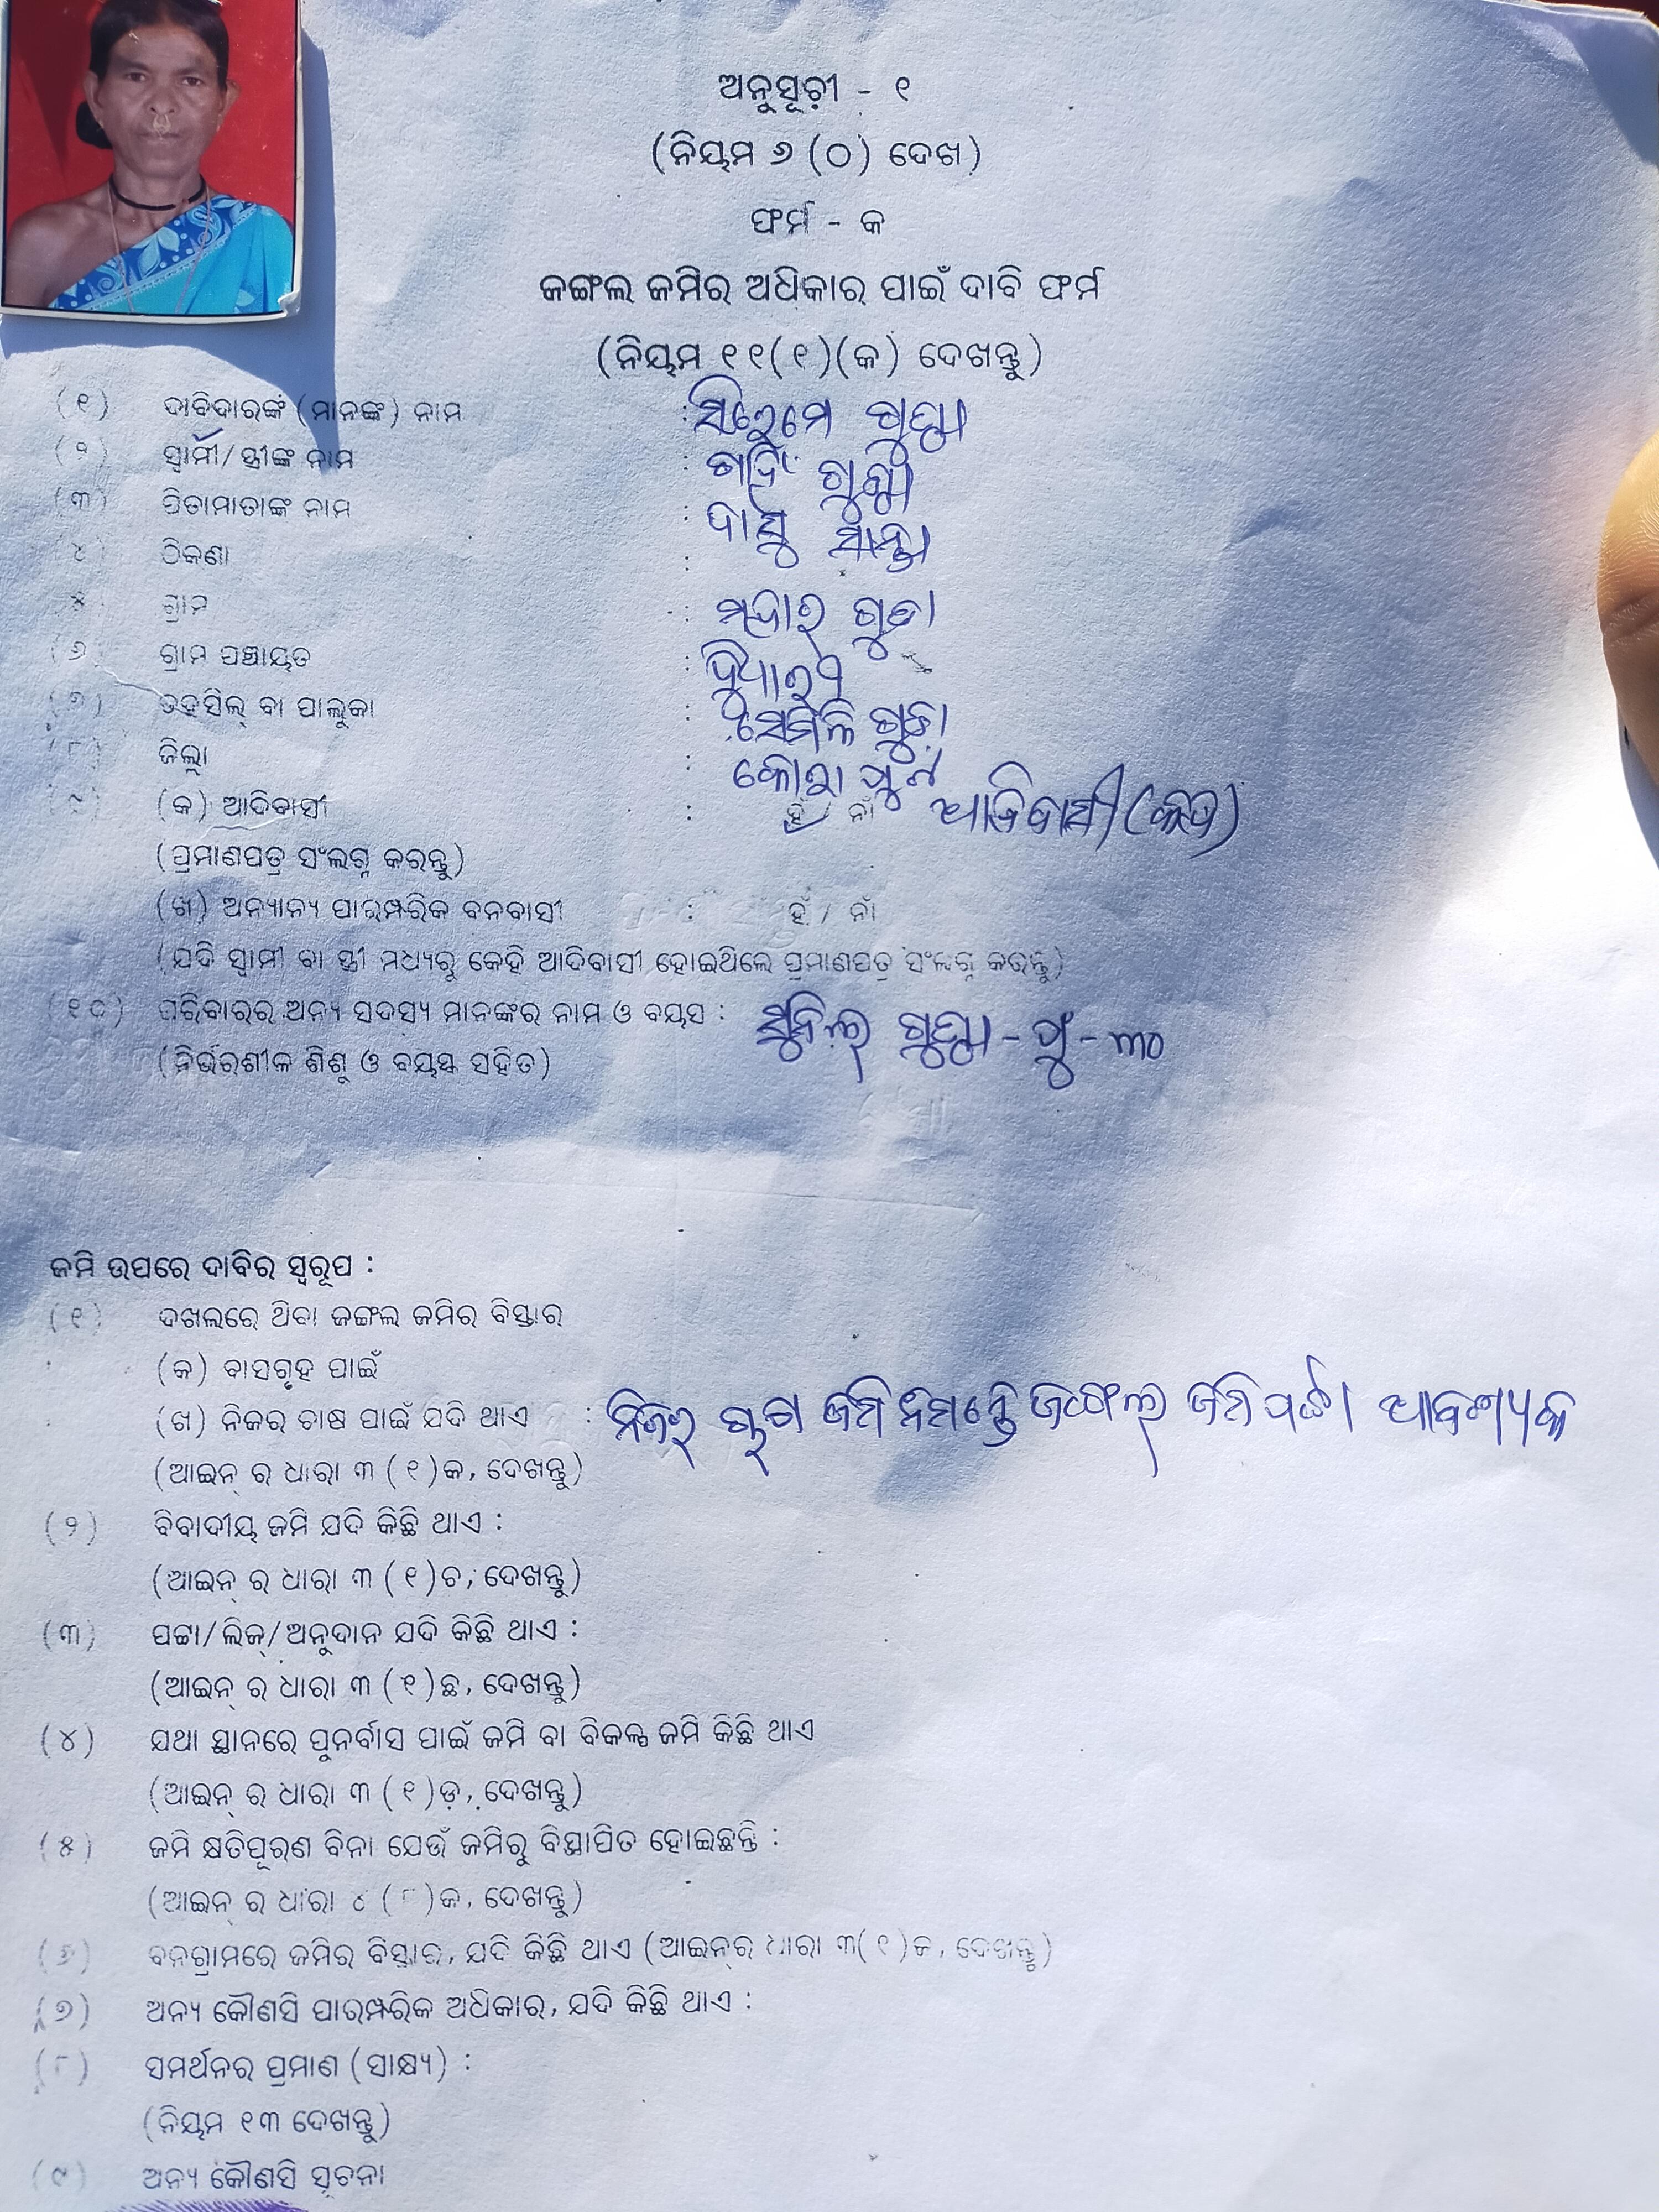 ଅନୁସୂଚୀ - ୧
(ନିୟମ ୬ (୦) ଦେଖ)
ଫର୍ମ - କ
ଜଙ୍ଗଲ ଜମିର ଅଧିକାର ପାଇଁ ଦାବି ଫର୍ମ
(ନିୟମ ୧୧(୧)(କ) ଦେଖନ୍ତୁ)
(୧) ଦାବିଦାରଙ୍କ (ମାନଙ୍କ) ନାମ :
(୨) ସ୍ୱାମୀ/ସ୍ତ୍ରୀଙ୍କ ନାମ :
(୩) ପିତାମାତାଙ୍କ ନାମ : ଦାସୁ ସାନ୍ତା
(୪) ଠିକଣା :
(୫) ଗ୍ରାମ :
(୬) ଗ୍ରାମ ପଞ୍ଚାୟତ :
(୭) ତହସିଲ୍ ବା ତାଲୁକା : ସେମିଳିଗୁଡ଼ା
(୮) ଜିଲ୍ଲା : କୋରାପୁଟ
(୯) (କ) ଆଦିବାସୀ : ହଁ / ନାଁ ଆଦିବାସୀ
(ପ୍ରମାଣପତ୍ର ସଂଲଗ୍ନ କରନ୍ତୁ)
(ଖ) ଅନ୍ୟାନ୍ୟ ପାରମ୍ପରିକ ବନବାସୀ : ହଁ / ନାଁ
(ଯଦି ସ୍ୱାମୀ ବା ସ୍ତ୍ରୀ ମଧ୍ୟରୁ କେହି ଆଦିବାସୀ ହୋଇଥିଲେ ପ୍ରମାଣପତ୍ର ସଂଲଗ୍ନ କରନ୍ତୁ)
(୧୦) ପରିବାରର ଅନ୍ୟ ସଦସ୍ୟ ମାନଙ୍କର ନାମ ଓ ବୟସ : ସୁନିଲ୍ - ପୁ - ୩୦
(ନିର୍ଭରଶୀଳ ଶିଶୁ ଓ ବୟସ୍କ ସହିତ)
ଜମି ଉପରେ ଦାବିର ସ୍ୱରୂପ :
(୧) ଦଖଲରେ ଥିବା ଜଙ୍ଗଲ ଜମିର ବିସ୍ତାର
(କ) ବାସଗୃହ ପାଇଁ
(ଖ) ନିଜର ଚାଷ ପାଇଁ ଯଦି ଥାଏ : ନିଜର ଚାଷ ଜମି ନିମନ୍ତେ ଜଙ୍ଗଲ ଜମି ପଟ୍ଟା ଆବଶ୍ୟକ
(ଆଇନ୍ ର ଧାରା ୩ (୧)କ, ଦେଖନ୍ତୁ)
(୨) ବିବାଦୀୟ ଜମି ଯଦି କିଛି ଥାଏ :
(ଆଇନ୍ ର ଧାରା ୩ (୧)ଚ, ଦେଖନ୍ତୁ)
(୩) ପଟ୍ଟା/ଲିଜ୍/ଅନୁଦାନ ଯଦି କିଛି ଥାଏ :
(ଆଇନ୍ ର ଧାରା ୩ (୧)ଛ, ଦେଖନ୍ତୁ)
(୪) ଯଥା ସ୍ଥାନରେ ପୁନର୍ବାସ ପାଇଁ ଜମି ବା ବିକଳ୍ପ ଜମି କିଛି ଥାଏ
(ଆଇନ୍ ର ଧାରା ୩ (୧)ଡ଼, ଦେଖନ୍ତୁ)
(୫) ଜମି କ୍ଷତିପୂରଣ ବିନା ଯେଉଁ ଜମିରୁ ବିସ୍ଥାପିତ ହୋଇଛନ୍ତି :
(ଆଇନ୍ ର ଧାରା ୪ (୮)କ, ଦେଖନ୍ତୁ)
(୬) ବନଗ୍ରାମରେ ଜମିର ବିସ୍ତାର, ଯଦି କିଛି ଥାଏ (ଆଇନ୍‌ର ଧାରା ୩(୧)ଜ, ଦେଖନ୍ତୁ)
(୭) ଅନ୍ୟ କୌଣସି ପାରମ୍ପରିକ ଅଧିକାର, ଯଦି କିଛି ଥାଏ :
(୮) ସମର୍ଥନର ପ୍ରମାଣ (ସାକ୍ଷ୍ୟ) :
(ନିୟମ ୧୩ ଦେଖନ୍ତୁ)
(୯) ଅନ୍ୟ କୌଣସି ସୂଚନା